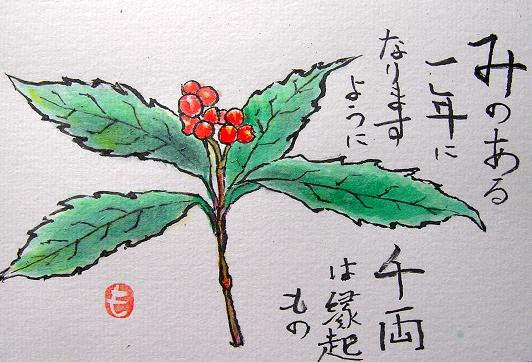 みのある
一年に
なります
ように
千両
は縁起
もの